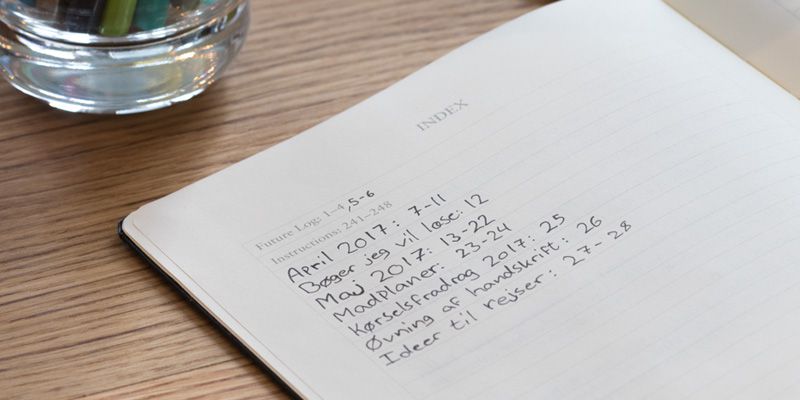 INDEX
Future Log: 1–4, 5-6
Instructions: 241–248
April 2017: 7-11
Bøger jeg vil læse: 12
Maj 2017: 13-22
Madplaner: 23-24
Kørselsfradrag 2017: 25
Øvning af handskrift: 26
Ideer til rejser: 27-28